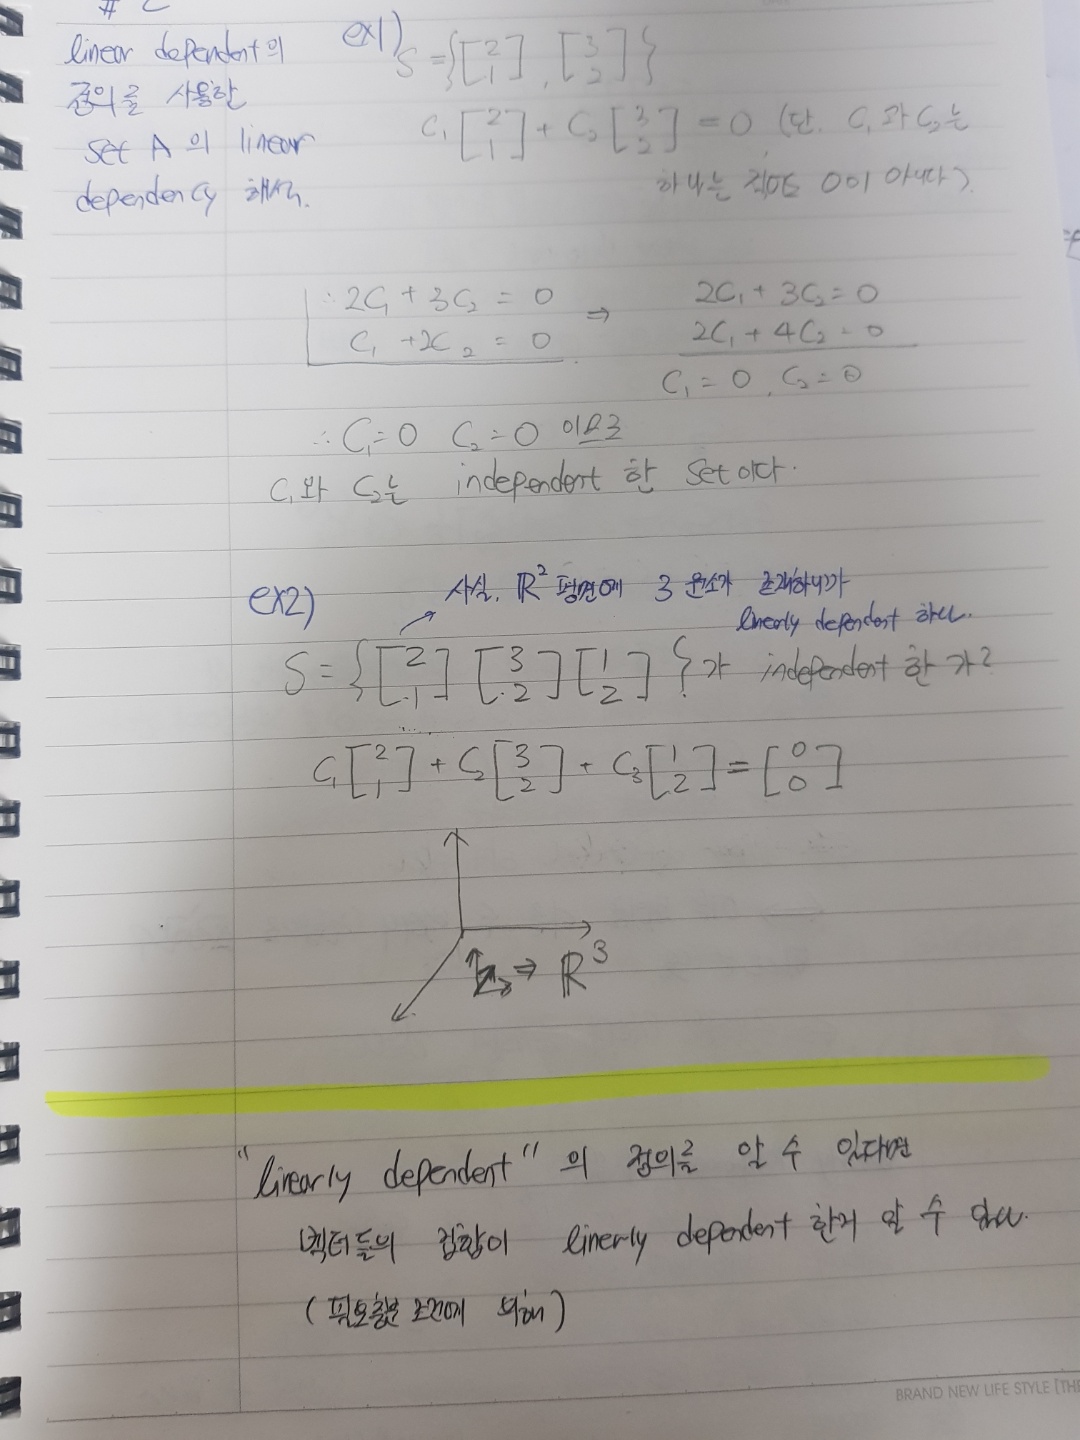 linear dependent의
정의를 사용한
Set A 의 linear
dependency 해석.
ex1) S = {[2 1], [3 2]}
C₁[2 1] + C₂[3 2] = 0 (단. C₁와 C₂는
하나는 적어도 0이 아니다).
∴ 2C₁ + 3C₂ = 0
C₁ + 2C₂ = 0
⇒ 2C₁ + 3C₂ = 0
2C₁ + 4C₂ = 0
C₁ = 0, C₂ = 0
∴ C₁=0 C₂=0 이므로
C₁와 C₂는 independent 한 Set이다.
ex2)
사실. ℝ² 평면에 3 원소가 존재하니까
linearly dependent 하다.
S = {[2 1] [3 2] [1 2]}가 independent 한가?
C₁[2 1] + C₂[3 2] + C₃[1 2] = [0 0]
⇒ ℝ³
"linearly dependent" 의 정의를 알 수 있다면
벡터들의 집합이 linerly dependent 한지 알 수 있다.
(필요충분 조건에 의해)
BRAND NEW LIFE STYLE [THE